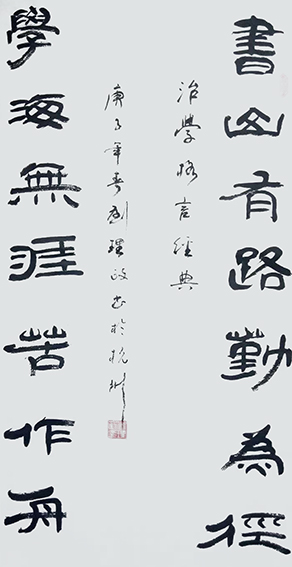 書山有路勤為徑
治學格言經典
庚子年春劉理政书於杭州
學海無涯苦作舟